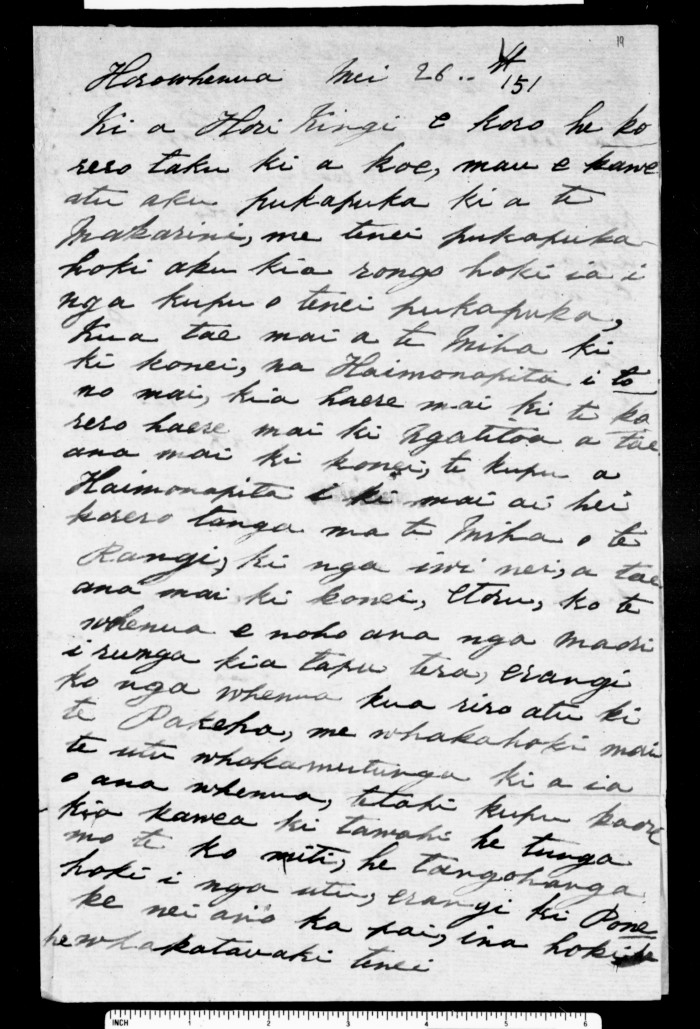 19
Horowhenua Mei 26..
151
Ki a Hori Kingi e koro he ko
rero taku ki a koe, mau e kawe
atu aku pukapuka ki a te
Makarini, me tenei pukapuka
hoki aku kia rongo hoki ia i
nga kupu o tenei pukapuka,
Kua tae mai a te Miha ki
ki konei, na Haimonapita i to
no mai, kia haere mai ki te ko
rero haere mai ki Ngatitoa a tae
ana mai ki konei, te kupu a
Haimonapita i ki mai ai hei
korero tanga ma te Miha o te
Rangi, ki nga iwi nei, a tae
ana mai ki konei, Etoru, ko te
whenua e noho ana nga maori
i runga kia tapu tera, erangi
ko nga whenua kua riro atu ki
te Pakeha, me whakahoki mai
te utu whakamutunga ki a ia
o ana whenua, tetahi kupu kaore
kia kawea ki tawahi he tunga
mo te ko miti, he tangohanga
hoki i nga utu, erangi ki Pone
ke nei ano ka pai, ina hoki he
he whakatauaki tenei
INCH 1 2 3 4 5 6